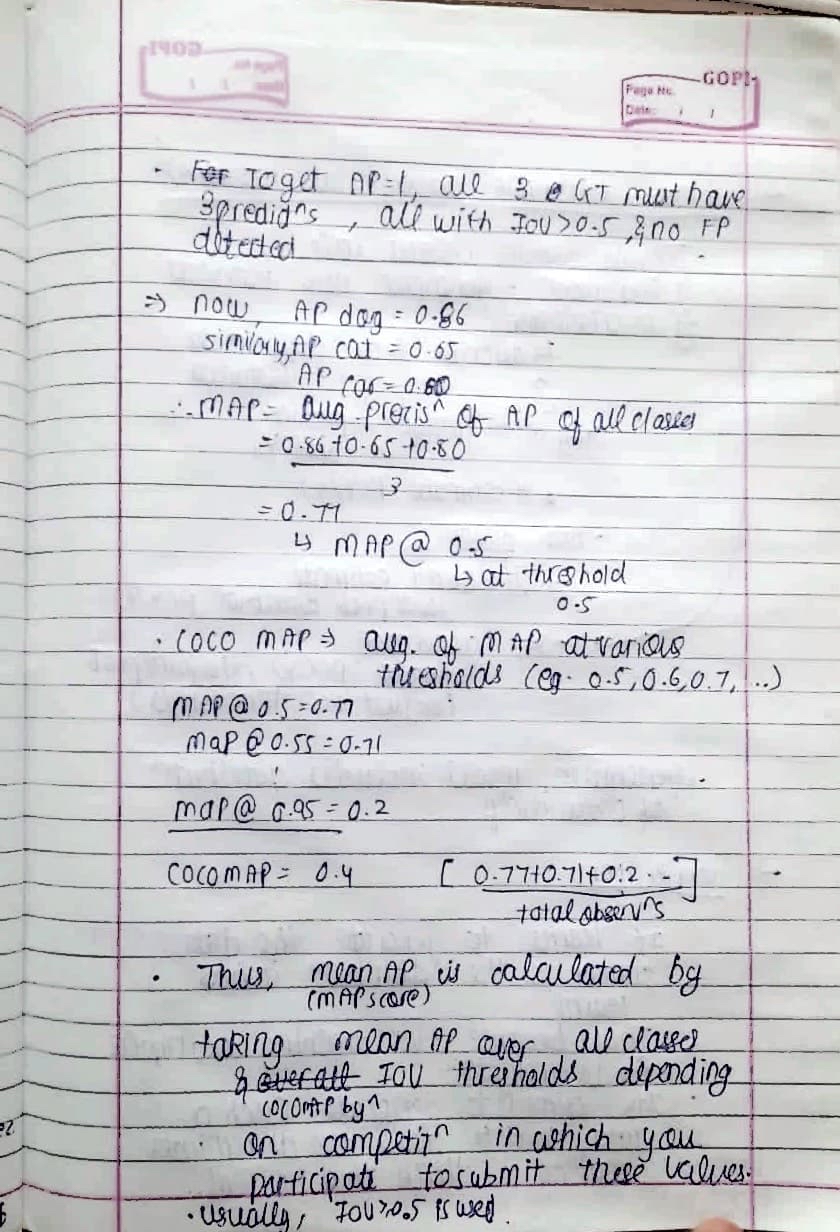 GOPI
Page No.
Date: / /
· For To get AP=1, all 3 GT must have
3 predicⁿs , all with IOU>0.5, & no FP
detected
⇒ now, AP dog = 0.86
similarly, AP cat = 0.65
AP car = 0.80
∴ MAP = avg. precisⁿ of AP of all classes
= 0.86+0.65+0.80
3
= 0.77
↳ MAP @ 0.5
↳ at threshold
0.5
· COCO MAP ⇒ avg. of MAP at various
thresholds (eg. 0.5, 0.6, 0.7, ...)
MAP @ 0.5 = 0.77
MaP @ 0.55 = 0.71
⋮
map @ 0.95 = 0.2
COCOMAP = 0.4 [ 0.77+0.71+0.2 -- ]
total observⁿs
· Thus, mean AP is calculated by
(MAP score)
taking mean AP over all classes
& over all IOU thresholds depending
COCOMAP byⁿ
on competitⁿ in which you
participate to submit these values.
· Usually, IOU>0.5 is used.